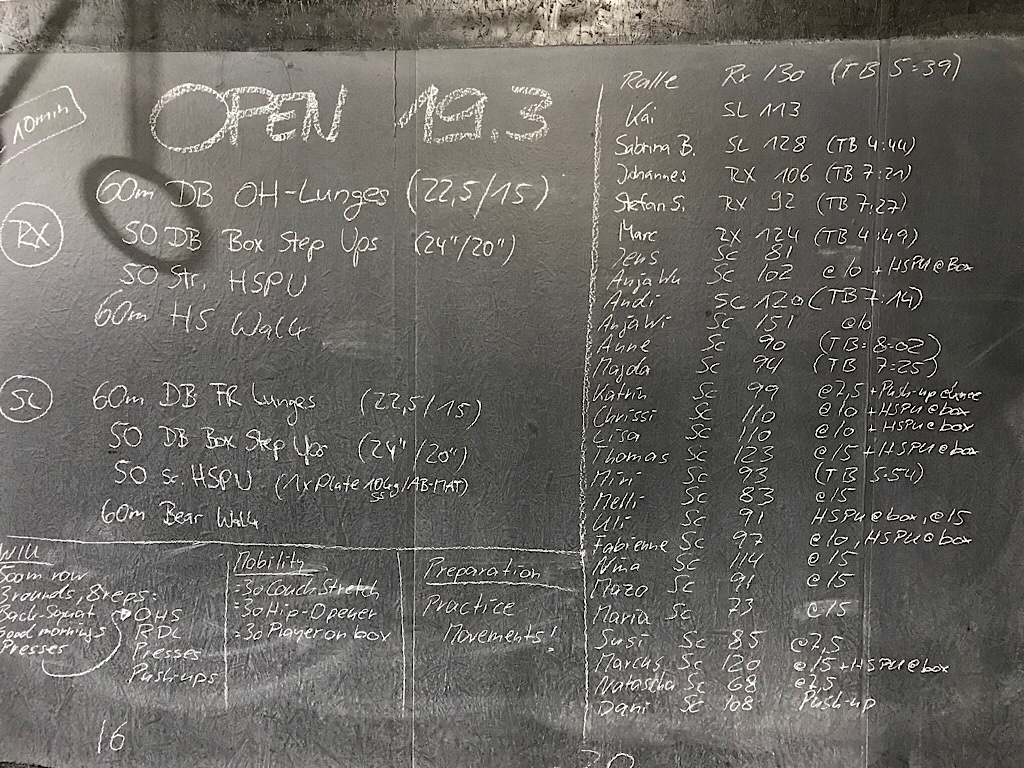 10min
OPEN 19.3
60m DB OH-Lunges (22,5/15)
RX
50 DB Box Step Ups (24"/20")
50 Str. HSPU
60m HS Walk
Sc
60m DB FR Lunges (22,5/15)
50 DB Box Step Ups (24"/20")
50 Sc. HSPU (1xPlate 10kg/AB-MAT)
60m Bear Walk
WIU
500m row
3 rounds, 8 reps:
Back-Squat
Good mornings
Presses
OHS
RDL
Presses
Push-ups
Mobility
:30 Couch Stretch
:30 Hip-Opener
:30 Prayer on box
Preparation
Practice
Movements!
16
Ralle Rx 130 (TB 5:39)
Kai SL 113
Sabrina B. SL 128 (TB 4:44)
Johannes RX 106 (TB 7:21)
Stefan S. RX 92 (TB 7:27)
Marc RX 124 (TB 4:49)
Jens Sc 81
Anja Wu Sc 102 @10 + HSPU@Box
Andi Sc 120 (TB 7:14)
Anja Wi Sc 151 @10
Anne Sc 90 (TB: 8:02)
Majda Sc 94 (TB 7:25)
Katrin Sc 99 @7,5 + Push-up
Chrissi Sc 110 @10 + HSPU@box
Lisa Sc 110 @10 + HSPU@box
Thomas Sc 123 @15 + HSPU@box
Miri Sc 93 (TB 5:54)
Melli Sc 83 @15
Uli Sc 91 HSPU@box, @15
Fabienne Sc 97 @10, HSPU@box
Sc 114 @15
Mazo Sc 91 @15
Maria Sc 73 @15
Susi Sc 85 @7,5
Marcus Sc 120 @15 + HSPU@box
Natascha Sc 68 @7,5
Dani Sc 108 Push-up